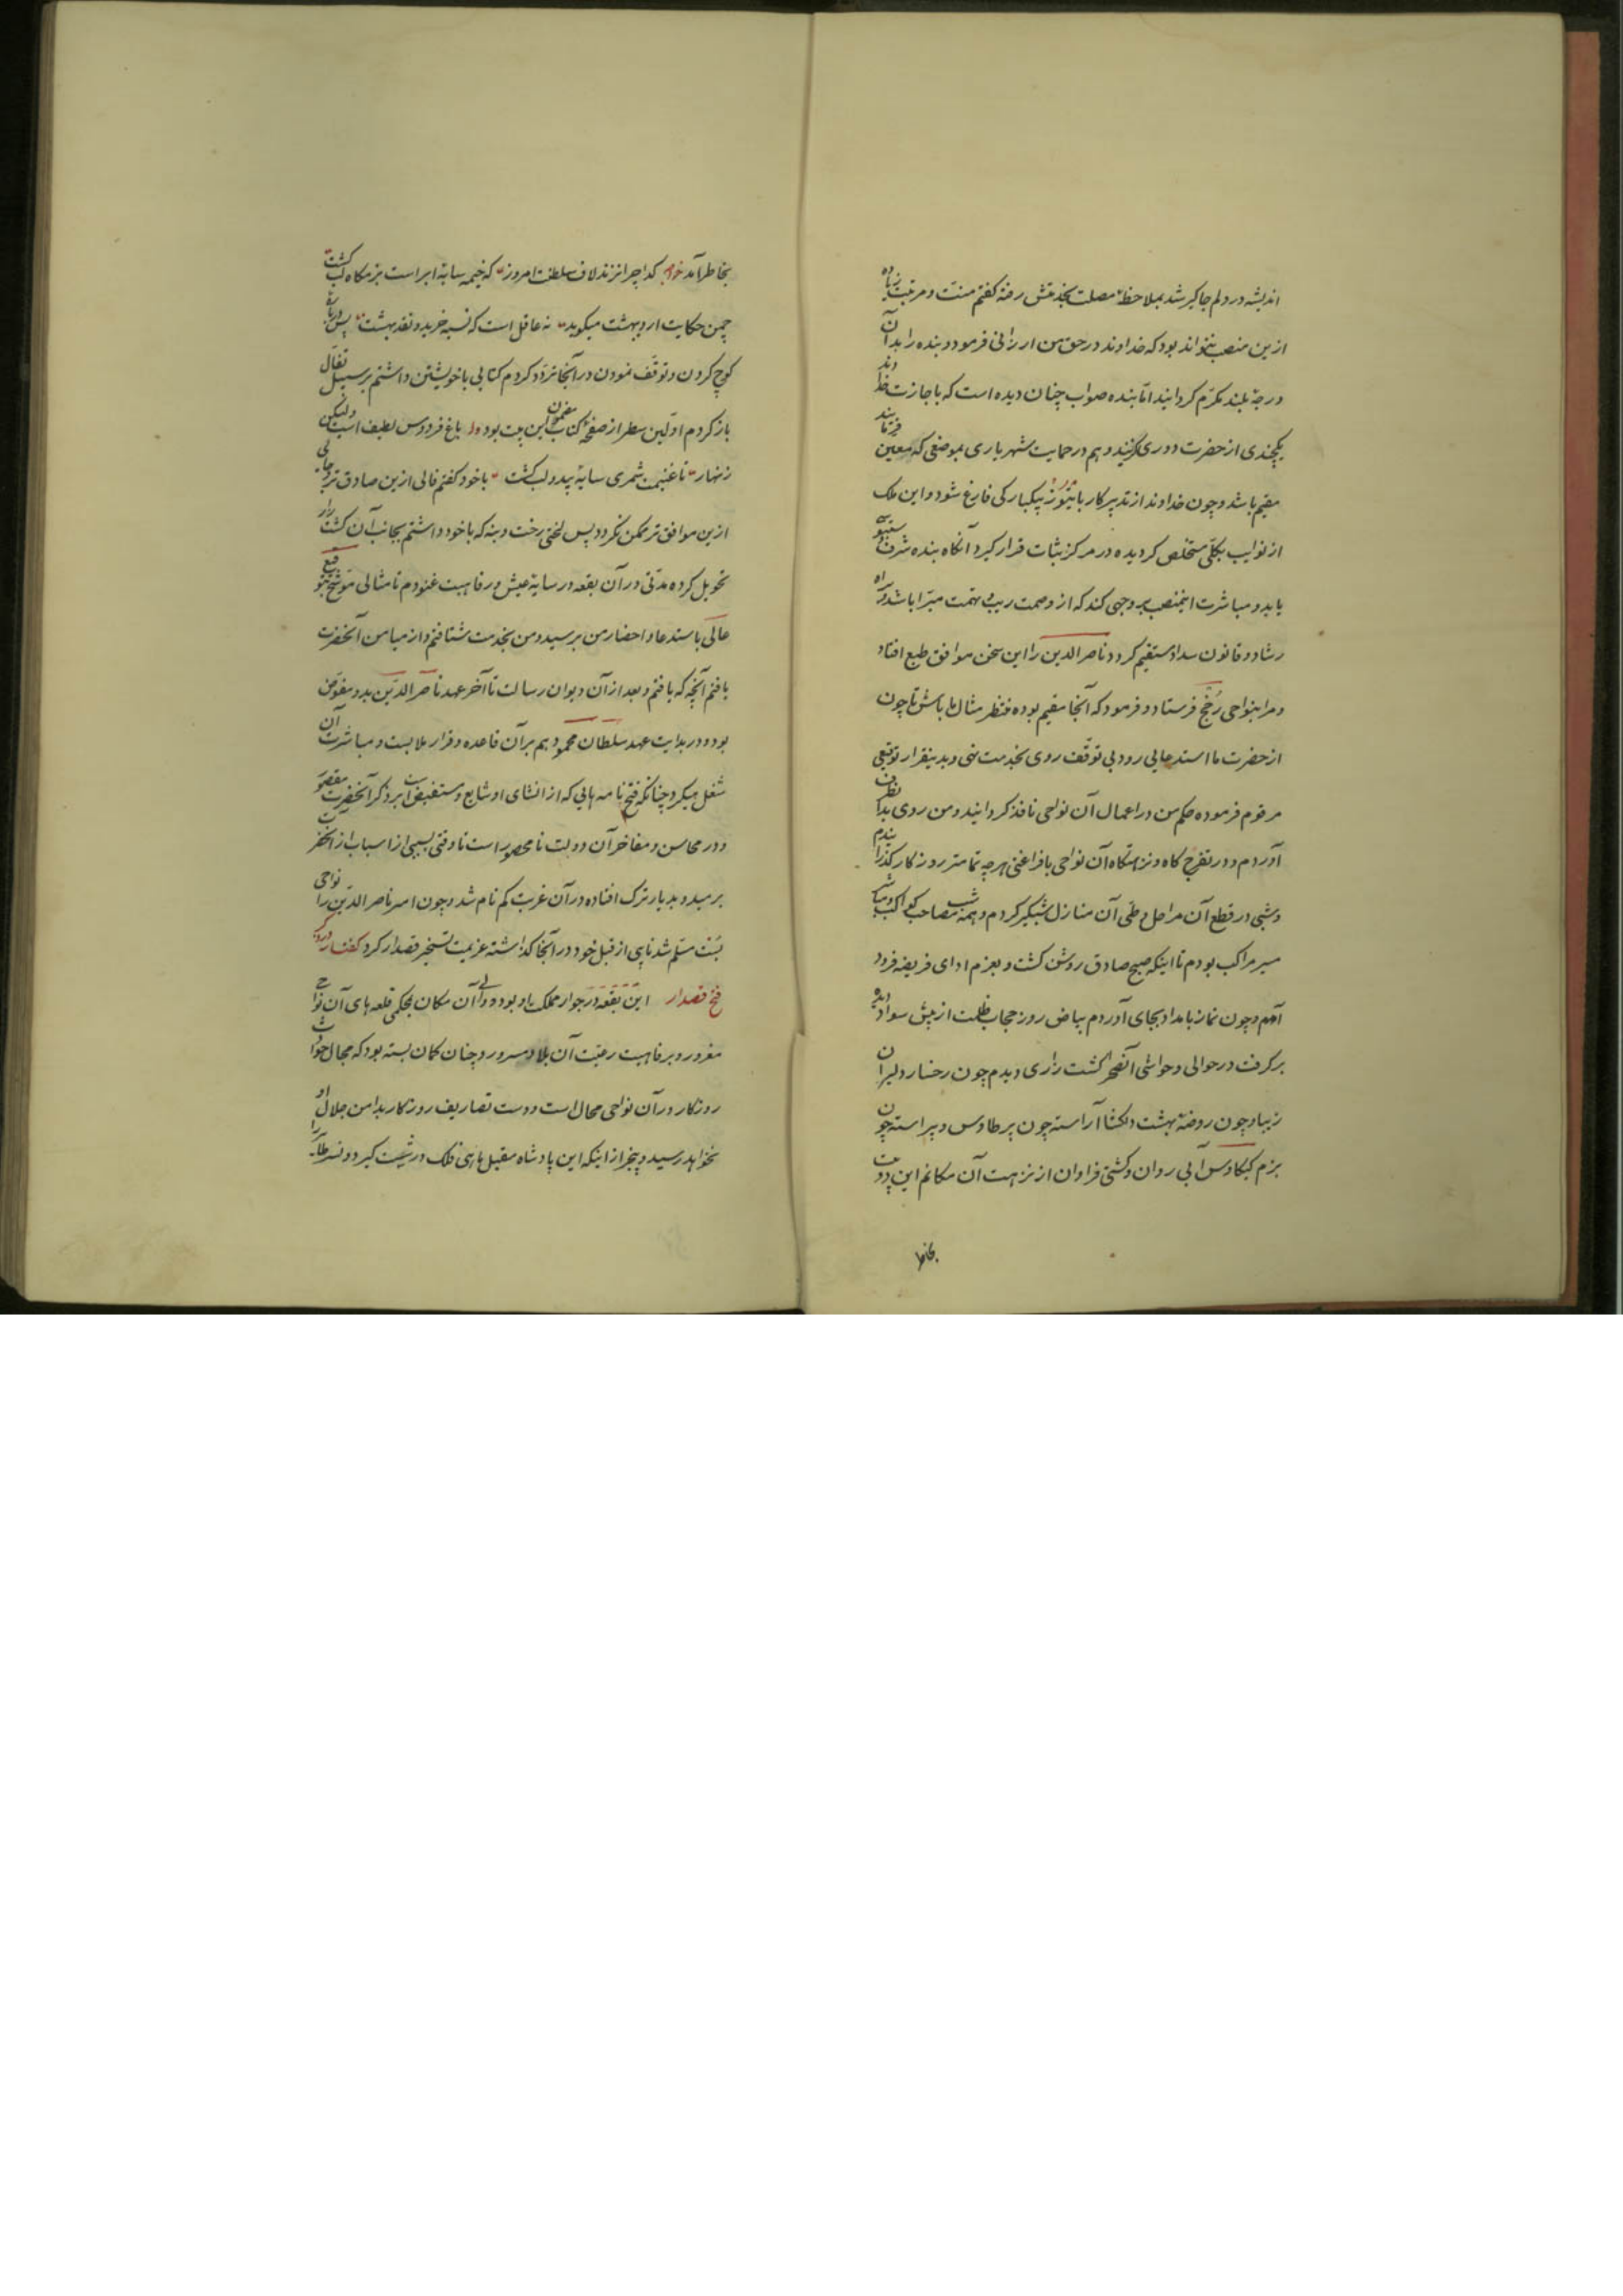 اندیشه در دلم جاگیر شد بملاحظهٔ مصلحت بخدمتش رفته کفتم منت و مرتبت زیاده
ازین منصب نتواند بود که خداوند در حق من ارزانی فرمود و بنده را بدان
درجهٔ بلند مکرّم کردانید امّا بنده صواب چنان دیده است که باجازت خداوند
یکچندی از حضرت دوری کزیند و هم در حمایت شهریاری بموضعی که معین فرمایند
مقیم باشد و چون خداوند از تدبیر کار بایتوز بیکبارکی فارغ شود و این ملک
از نوایب بکلّی مستخلص کردیده در مرکز ثبات قرار کیرد آنکاه بنده شرف دستبوس
یابد و مباشرت اینمنصب بر وجهی کند که از وصمت ریب و تهمت مبرّا باشد و براه
رشاد و قانون سداد مستقیم کردد ناصر الدین را این سخن موافق طبع افتاد
و مرا بنواحی رُخّج فرستاد و فرمود که آنجا مقیم بوده منتظر مثال ما باش تا چون
از حضرت ما استدعایی رود بی توقّف روی بخدمت نهی و بدینقرار توقیعی
مرقوم فرموده حکم من در اعمال آن نواحی نافذ کردانید و من روی بدانطرف
آوردم و در تفرّج کاه و نزهتکاه آن نواحی بافراغتی هرچه تمامتر روزکار کذرانیدم
و شبی در قطع آن مراحل و طی آن منازل شبکیر کردم و همه شب مصاحب کواکب و
سیر مراکب بودم تا اینکه صبح صادق روشن کشت و بعزم ادای فریضه فرود
آمدم و چون نماز بامداد بجای آوردم بیاض روز حجاب ظلمت از پیش سواد دیده
برکرفت در حوالی و حواشی آنصحرا کشت زاری دیدم چون رخسار دلبران
زیبا و چون روضهٔ بهشت دلکشا آراسته چون پر طاوس و پیراسته چون
بزم کیکاوس آبی روان و کشتی فراوان از نزهت آن مکانم این دو بیت
بخاطر
بخاطر آمد کدا چرا نزند لاف سلطنت امروز که خیمه سایهٔ ابر است و بزمکاه لب کشت
چمن حکایت اردیبهشت میکوید نه عاقل است که نسیه خرید و نقد بهشت پس در باب
کوچ کردن و توقّف نمودن در آنجا تردّد کردم کتابی با خویشتن داشتم بر سبیل تفأل
باز کردم اوّلین سطر از صفحهٔ کتاب مضمون این بیت بود باغ فردوس لطیف است ولیکن
زنهار تا غنیمت شمری سایهٔ بید و لب کشت با خود کفتم فالی ازین صادق تر و
ازین موافق تر ممکن نکردد پس لختی رخت و بنه که با خود داشتم بجانب آن کشت زار
تحویل کرده مدّتی در آن بقعه در سایهٔ عیش و رفاهیت غنودم تا مثالی موشّح بتوقیع
عالی باستدعا و احضار من برسید و من بخدمت شتافتم و از میامن آنحضرت
یافتم آنچه که یافتم و بعد از آن دیوان رسالت تا آخر عهد ناصر الدّین بدو مفوّض
بود و در بدایت عهد سلطان محمود هم بر آن قاعده و قرار ملابست و مباشرت آن
شغل میکرد چنانکه فتح نامه هایی که از انشای او شایع و مستفیض است بر ذکر آنحضرت مقصور
و در محاسن و مفاخر آن دولت نامحصور است تا وقتی بسببی از اسباب از آنحضرت
برمید و بدیار ترک افتاده در آن غربت کم نام شد و چون امیر ناصر الدّین را نواحی
بُست مسلّم شد نایبی از قبل خود در آنجا کذاشته عزیمت تسخیر قصدار کرد کفتار در ذکر
فتح قصدار این بقعه در جوار مملکت او بود و والی آن مکان بمحکمی قلعه های آن نواحی
مغرور و برفاهیت رعیّت آن بلاد مسرور و چنان کمان بسته بود که مجال حوادث
روزکار در آن نواحی محال است و دست تصاریف روزکار بدامن جلال او
نخواهد رسید و بیخبر از اینکه این پادشاه مقبل ماهی فلک در شست کیرد و نسر طایر را